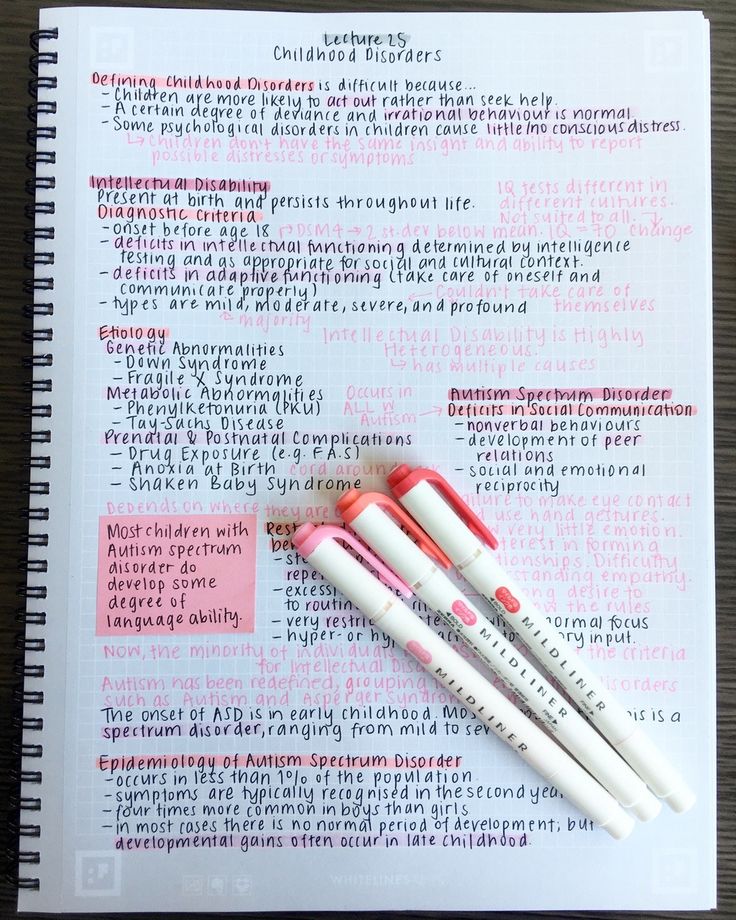 Lecture 25
Childhood Disorders
Defining Childhood Disorders is difficult because...
- Children are more likely to act out rather than seek help.
- A certain degree of deviance and irrational behaviour is normal.
- Some psychological disorders in children cause little/no conscious distress.
↳ Children don't have the same insight and ability to report
possible distresses or symptoms
Intellectual Disability
Present at birth and persists throughout life.
IQ tests different in
different cultures.
Not suited to all.
Diagnostic Criteria
- onset before age 18
DSM4 → 2 st.dev below mean. IQ = 70
change
- deficits in intellectual functioning determined by intelligence
testing and as appropriate for social and cultural context.
- deficits in adaptive functioning (take care of oneself and
communicate properly)
Couldn't take care of
themselves
- types are mild, moderate, severe, and profound
majority
Etiology
Intellectual Disability is Highly
Heterogeneous.
↳ has multiple causes
Genetic Abnormalities
- Down Syndrome
- Fragile X Syndrome
Metabolic Abnormalities
- Phenylketonuria (PKU)
- Tay-Sachs Disease
Prenatal & Postnatal Complications
- Drug Exposure (e.g. F.A.S)
- Anoxia at Birth
cord around
- Shaken Baby Syndrome
Occurs in
ALL w
Autism
Autism Spectrum Disorder
Deficits in Social Communication
- nonverbal behaviours
- development of peer
relations
- social and emotional
reciprocity
Depends on where they are
failure to make eye contact
use hand gestures.
very little emotion.
interest in forming
relationships. Difficulty
understanding empathy.
desire to
the rules
Most children with
Autism spectrum
disorder do
develop some
degree of
language ability.
- excess
to routin
- very restric
normal focus
- hyper- or hy
input.
Now, the minority of individuals
the criteria
for Intellectual
Autism has been redefined, grouping
disorders
such as Autism and Asperger Syndrome
The onset of ASD is in early childhood.
is a
spectrum disorder, ranging from mild to
Epidemiology of Autism Spectrum Disorder
- occurs in less than 1% of the population.
- symptoms are typically recognised in the second year
- four times more common in boys than girls
- in most cases there is no normal period of development; but
developmental gains often occur in late childhood.
MILDLINER
MILDLINER
MILDLINER
WHITELINES